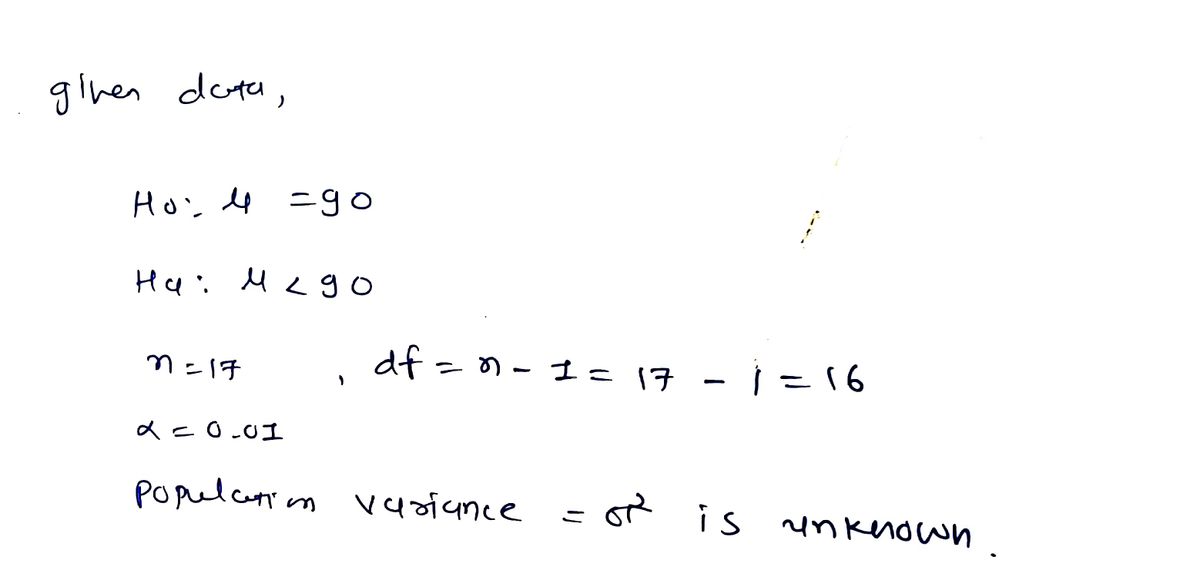 given data,
H0: μ = 90
Ha: μ < 90
n = 17 , df = n - 1 = 17 - 1 = 16
α = 0.01
Population variance = σ² is unknown.